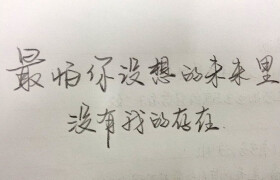 最怕你设想的未来里
没有我的存在